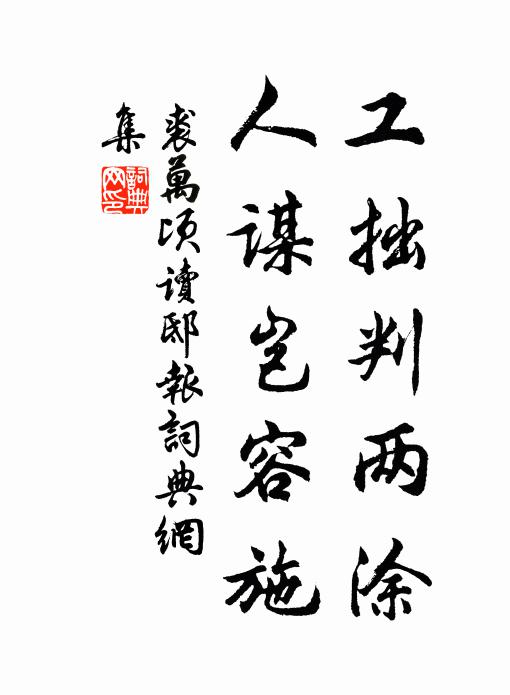 工拙判两涂
人谋岂容施
裘萬頃讀邸報詞典網
集
詞典網印